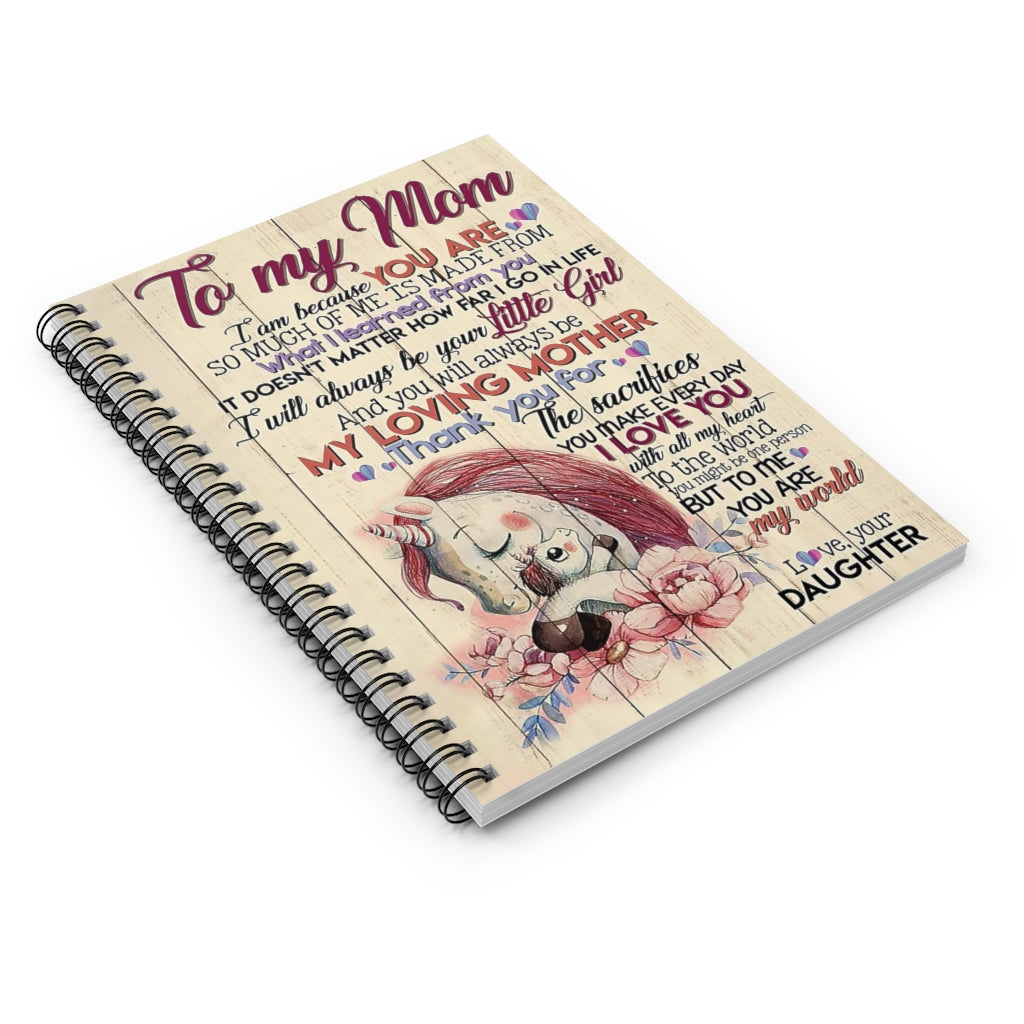 To my Mom
I am because YOU ARE
SO MUCH OF ME IS MADE FROM
What I learned from you
IT DOESN'T MATTER HOW FAR I GO IN LIFE
I will always be your Little Girl
And you will always be
MY LOVING MOTHER
Thank you for
The sacrifices
YOU MAKE EVERY DAY
I LOVE YOU
with all my heart
To the world
you might be one person
BUT TO ME
YOU ARE
my world
Love, your
DAUGHTER